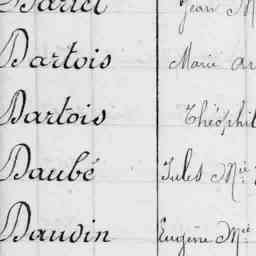 Jean
Dartois Marie
Dartois Théophil
Daubé Jules Mie
Dauvin Eugène Mie